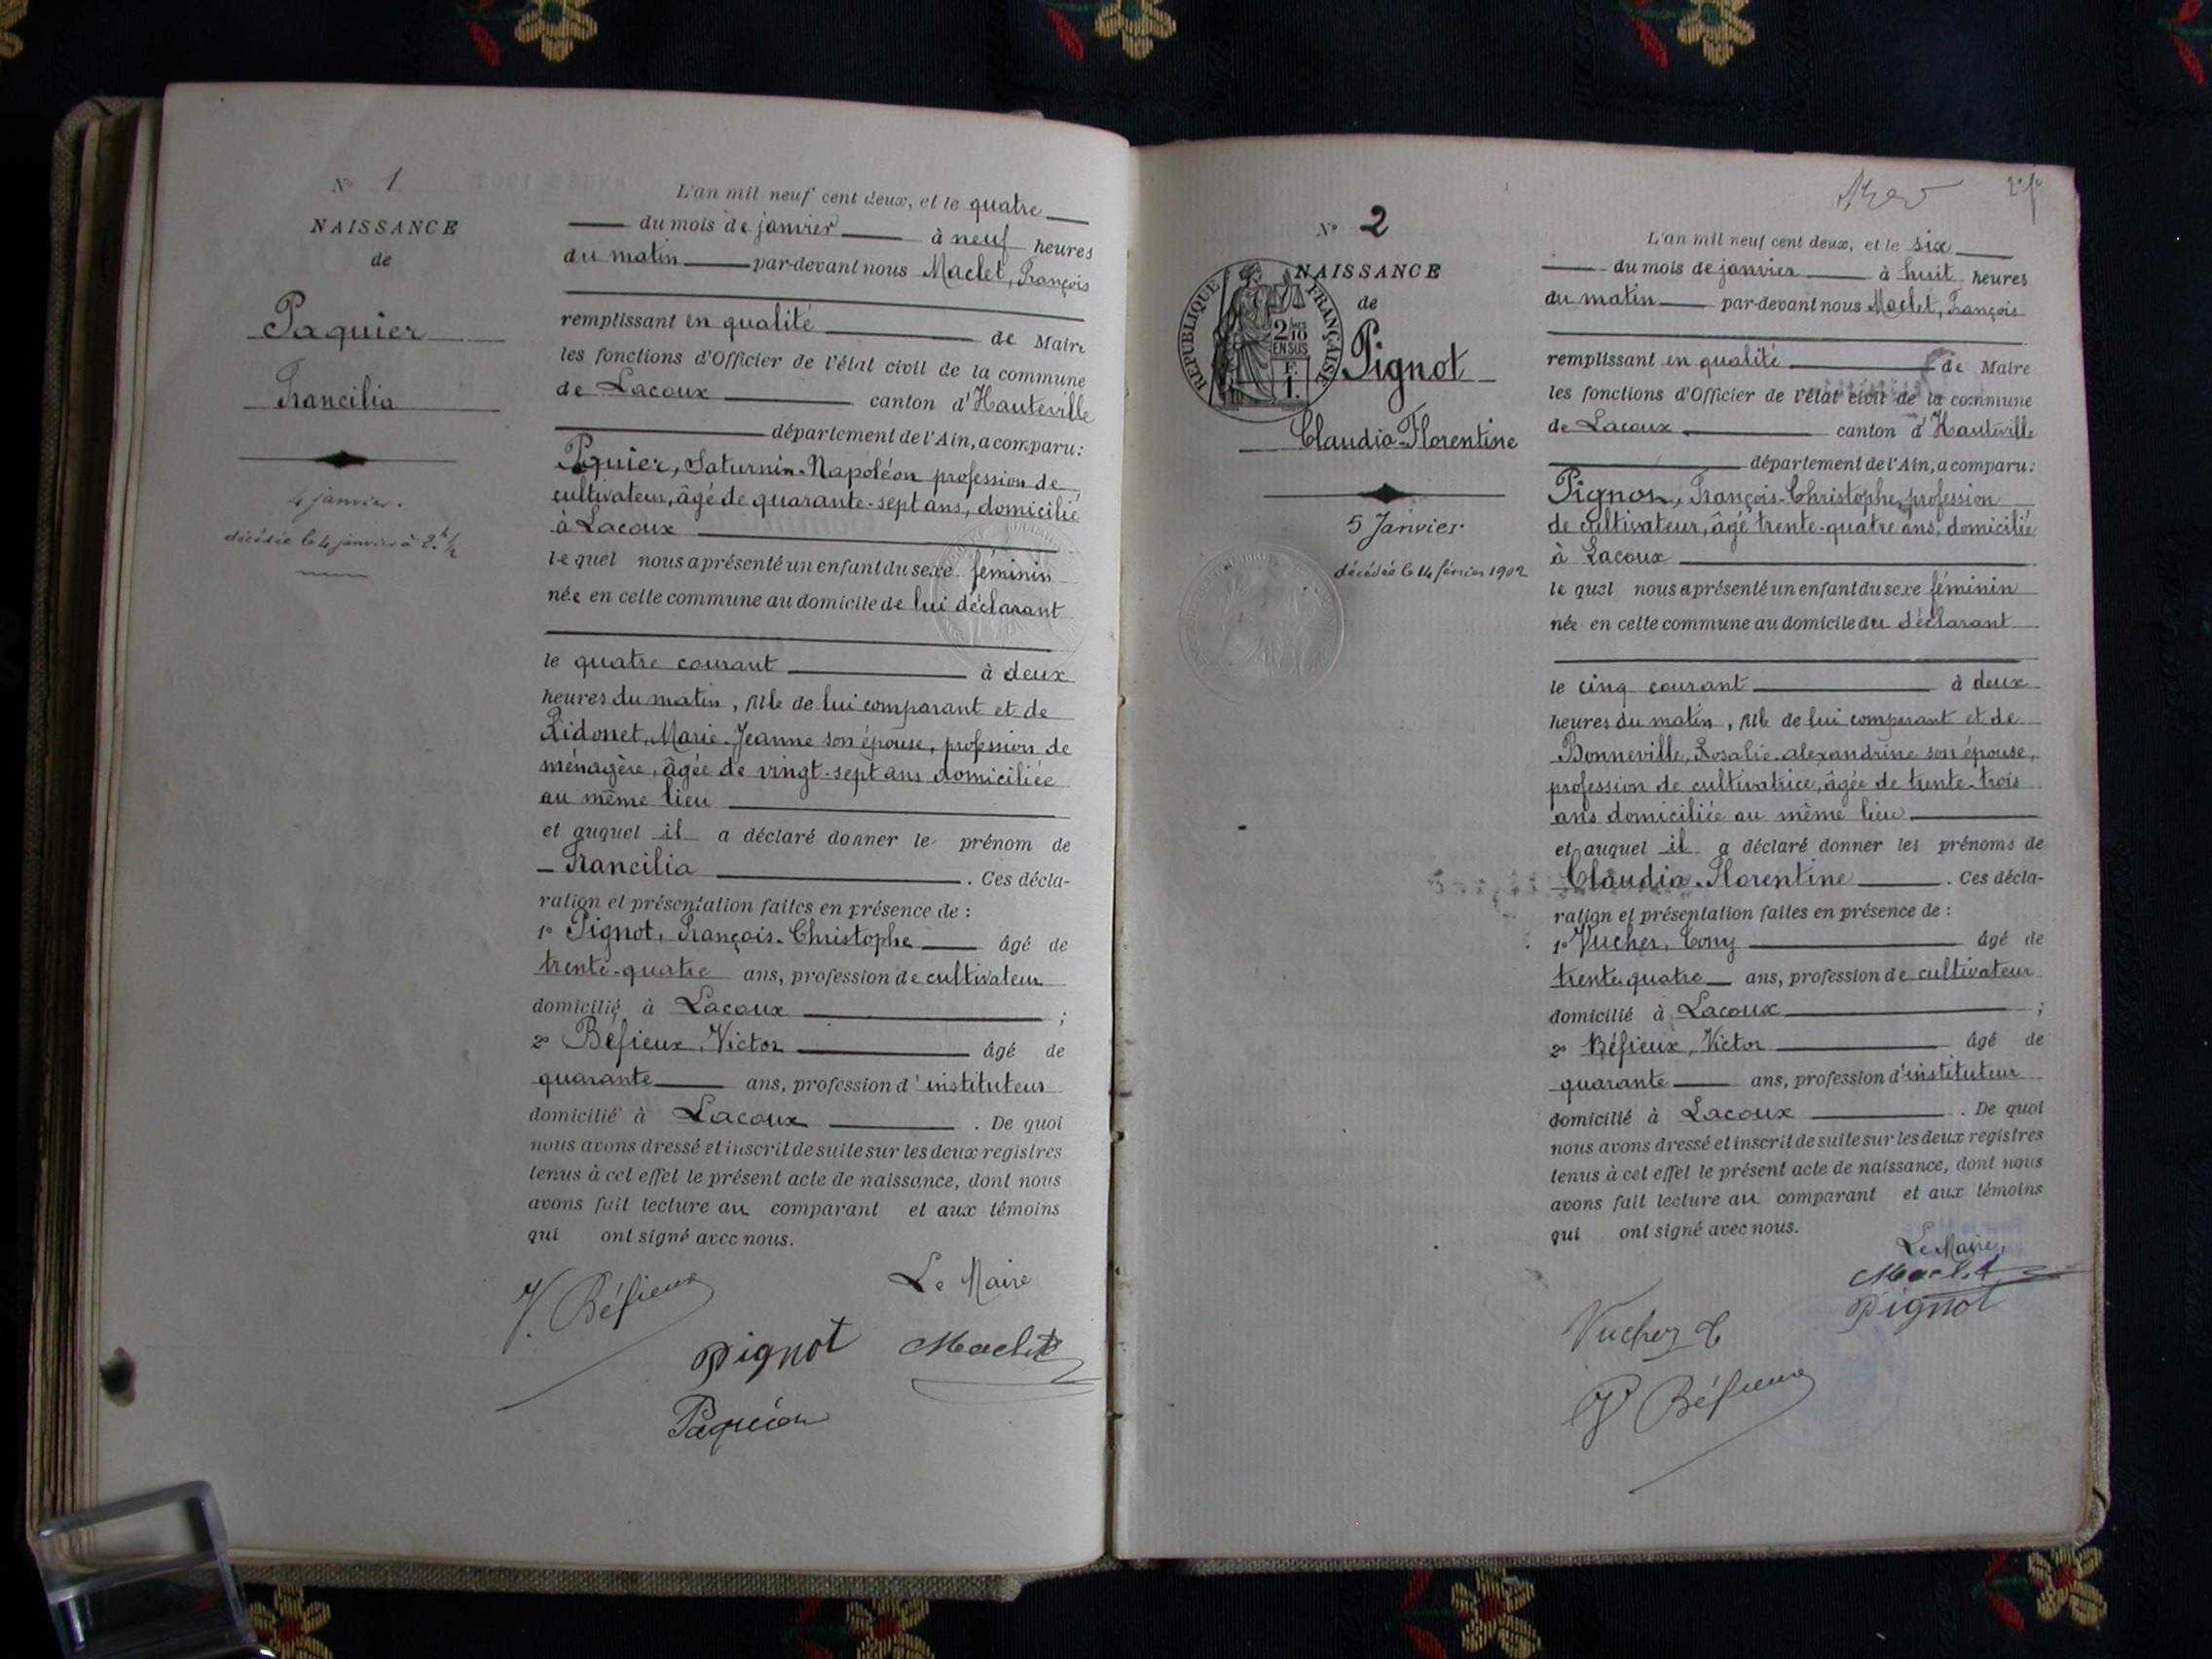 N° 1
NAISSANCE
de
Paquier
Francilia
4 janvier.
décédée le 4 janvier à 2 h 1/2
L'an mil neuf cent deux, et le quatre
du mois de janvier à neuf heures
du matin par-devant nous Maclet, François
remplissant en qualité de Maire
les fonctions d'Officier de l'état civil de la commune
de Lacoux canton d'Hauteville
département de l'Ain, a comparu:
Paquier, Saturnin-Napoléon profession de
cultivateur, âgé de quarante-sept ans, domicilié
à Lacoux
lequel nous a présenté un enfant du sexe féminin
née en cette commune au domicile de lui déclarant
le quatre courant à deux
heures du matin, fille de lui comparant et de
Ridonet, Marie-Jeanne son épouse, profession de
ménagère, âgée de vingt-sept ans domiciliée
au même lieu
et auquel il a déclaré donner le prénom de
Francilia . Ces décla-
ration et présentation faites en présence de :
1° Pignot, François-Christophe âgé de
trente-quatre ans, profession de cultivateur
domicilié à Lacoux ;
2° Béfieux, Victor âgé de
quarante ans, profession d'instituteur
domicilié à Lacoux . De quoi
nous avons dressé et inscrit de suite sur les deux registres
tenus à cet effet le présent acte de naissance, dont nous
avons fait lecture au comparant et aux témoins
qui ont signé avec nous.
Le Maire
V. Béfieux
Pignot Maclet
N° 2
NAISSANCE
de
RÉPUBLIQUE FRANÇAISE
2/10
EN SUS
F.
1.
Pignot
Claudia-Florentine
5 Janvier
décédée le 14 février 1902
L'an mil neuf cent deux, et le six
du mois de janvier à huit heures
du matin par-devant nous Maclet, François
remplissant en qualité de Maire
les fonctions d'Officier de l'état civil de la commune
de Lacoux canton d'Hauteville
département de l'Ain, a comparu:
Pignot, François-Christophe, profession
de cultivateur, âgé trente-quatre ans, domicilié
à Lacoux
lequel nous a présenté un enfant du sexe féminin
née en cette commune au domicile du déclarant
le cinq courant à deux
heures du matin, fille de lui comparant et de
Bonneville, Rosalie-alexandrine son épouse,
profession de cultivatrice, âgée de trente-trois
ans domiciliée au même lieu
et auquel il a déclaré donner les prénoms de
Claudia-Florentine . Ces décla-
ration et présentation faites en présence de :
1° Vucher, Tony âgé de
trente quatre ans, profession de cultivateur
domicilié à Lacoux ;
2° Béfieux, Victor âgé de
quarante ans, profession d'instituteur
domicilié à Lacoux . De quoi
nous avons dressé et inscrit de suite sur les deux registres
tenus à cet effet le présent acte de naissance, dont nous
avons fait lecture au comparant et aux témoins
qui ont signé avec nous.
Le Maire,
Maclet
Pignot
Vucher T
V Béfieux